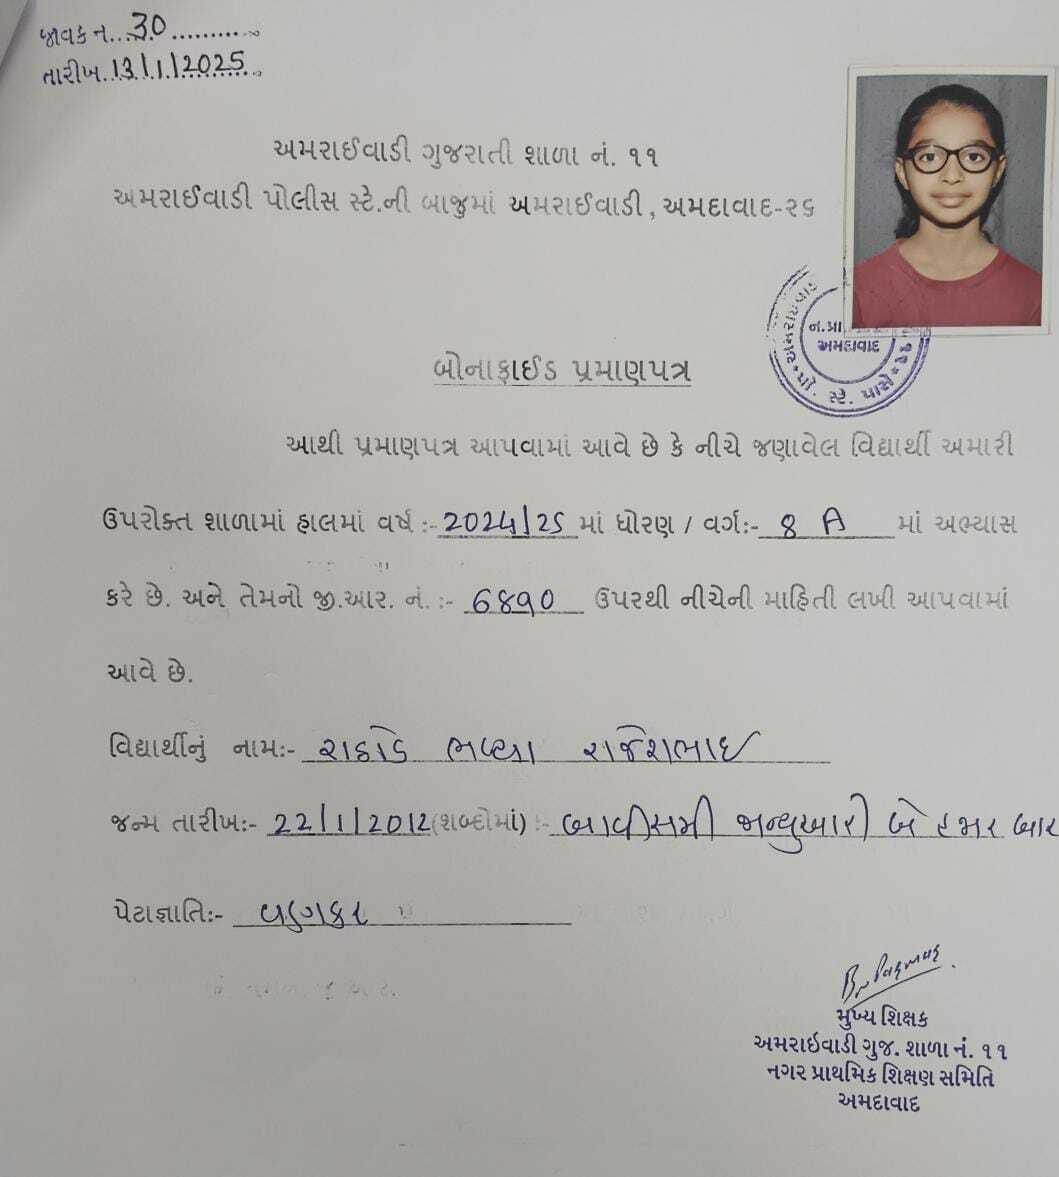 જાવક નં...30..........
તારીખ.13/1/2025..
અમરાઈવાડી ગુજરાતી શાળા નં. ૧૧
અમરાઈવાડી પોલીસ સ્ટે.ની બાજુમાં અમરાઈવાડી, અમદાવાદ-૨૬
ન.પ્રા.
અમદાવાદ
પો. સ્ટે. પાસે
બોનાફાઈડ પ્રમાણપત્ર
આથી પ્રમાણપત્ર આપવામાં આવે છે કે નીચે જણાવેલ વિદ્યાર્થી અમારી
ઉપરોક્ત શાળામાં હાલમાં વર્ષ :- 2024/25 માં ધોરણ / વર્ગ:- 8 A માં અભ્યાસ
કરે છે. અને તેમનો જી.આર. નં. :- 6890 ઉપરથી નીચેની માહિતી લખી આપવામાં
આવે છે.
વિદ્યાર્થીનું નામ:- રાઠોડ ભવ્યા રાજેશભાઈ
જન્મ તારીખ:- 22/1/2012 (શબ્દોમાં) :- બાવીસમી જાન્યુઆરી બે હજાર બાર
પેટાજ્ઞાતિ:- વણકર
મુખ્ય શિક્ષક
અમરાઇવાડી ગુજ. શાળા નં. ૧૧
નગર પ્રાથમિક શિક્ષણ સમિતિ
અમદાવાદ